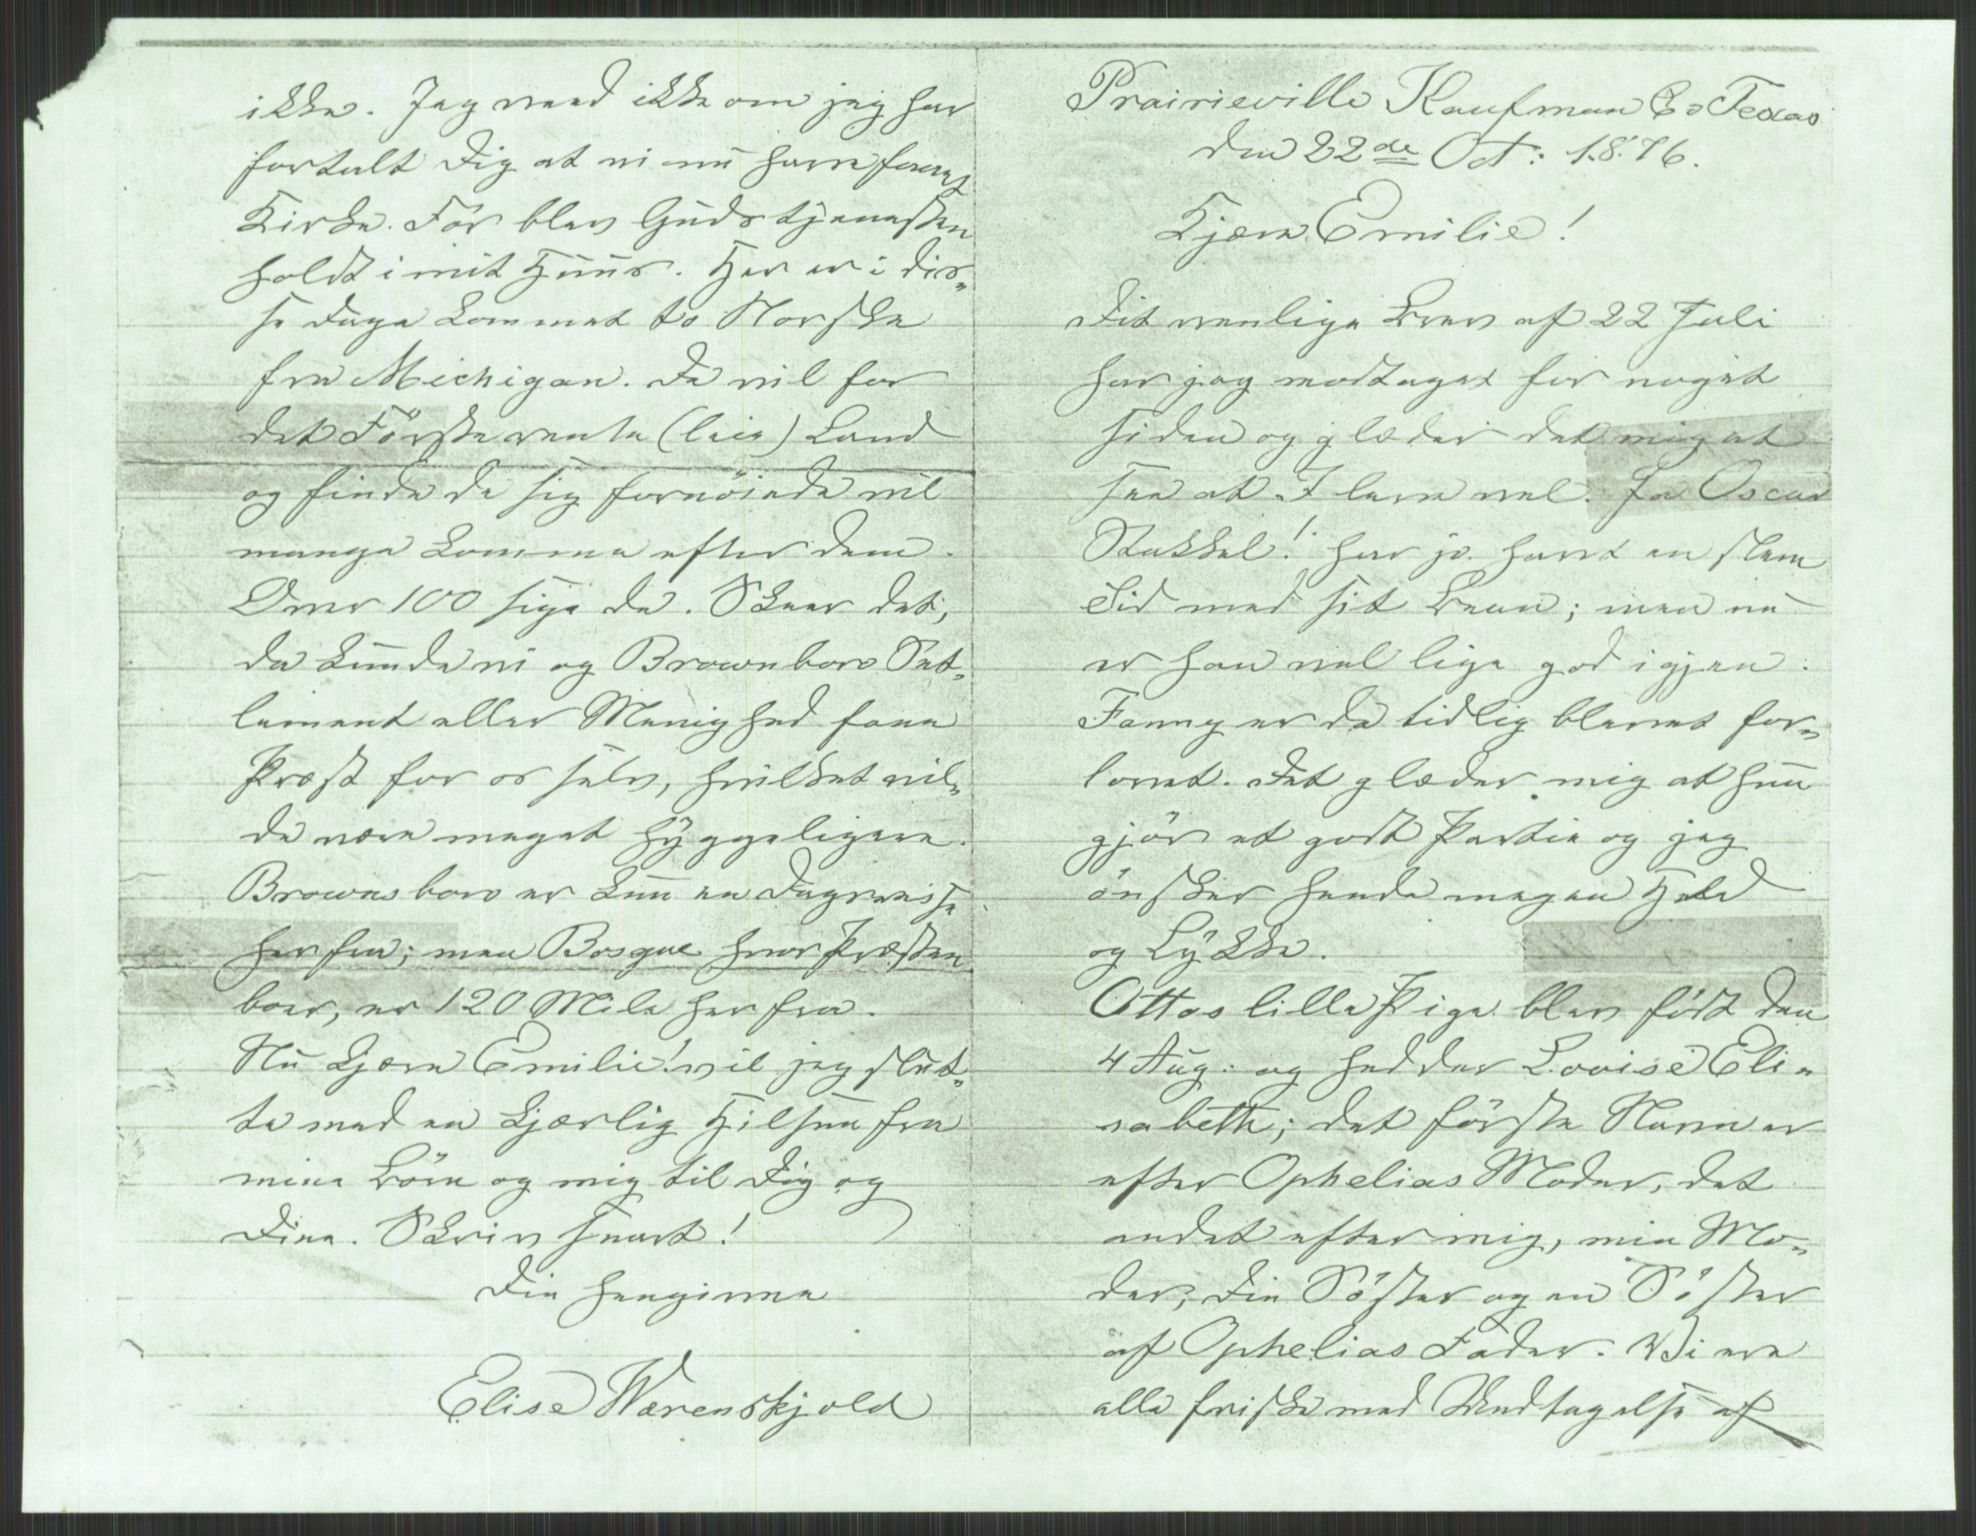 ikke. Jeg veed ikke om jeg har
fortalt Dig at vi nu have faaet
Kirke. Før blev Gudstjenesten
holdt i mit Huus. Her er i dis„
se Dage kommet to Norske
fra Michigan. De vil for
det Förste rente (leie) Land
og finde de sig fornöiede vil
mange komme efter dem.
Over 100 sige de. Skeer det,
da kunde vi og Brownboro Set„
lement eller Menighed faae
Præst for os selv, hvilket vil„
de være meget hyggeligere.
Brownsboro er kun en Dagreise
herfra; men Bosque hvor Præsten
boer, er 120 Mile herfra.
Nu kjære Emilie! vil jeg slut„
te med en kjærlig Hilsen fra
mine Börn og mig til Dig og
Dine. Skriv snart!
Din hengivne
Elise Wærenskjold
Prairieville Kaufman Co Texas
den 22de Oct: 1876.
Kjære Emilie!
Dit venlige Brev af 22 Juli
har jeg modtaget for noget
siden og glæder det mig at
see at I leve vel. Ja Oscar
Stakkel! har jo havt en slem
Tid med sit Been; men nu
er han vel lige god igjen.
Fanny er da tidlig blevet for„
lovet. Det glæder mig at hun
gjör et godt Partie og jeg
önsker hende megen Held
og Lykke.
Ottos lille Pige blev födt den
4 Aug: og hedder Lovise Eli„
sabeth; det förste Navn er
efter Ophelias Moder, det
andet efter mig, min Mo„
der, Din Söster og en Söster
af Ophelias Fader. Vi ere
alle friske med Undtagelse af